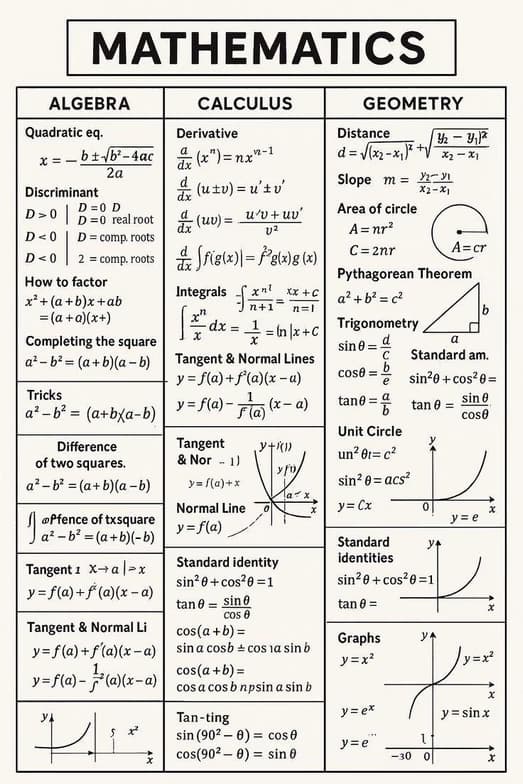 MATHEMATICS
ALGEBRA
Quadratic eq.
x = − b ± √b² − 4ac / 2a
Discriminant
D > 0 | D = 0 D
D = 0 real root
D < 0 | D = comp. roots
D < 0 | 2 = comp. roots
How to factor
x² + (a + b)x + ab
= (a + a)(x+)
Completing the square
a² − b² = (a + b)(a − b)
Tricks
a² − b² = (a+b)(a−b)
Difference
of two squares.
a² − b² = (a + b)(a − b)
∫ øPfence of txsquare
a² − b² = (a + b)(−b)
Tangent ɪ x→a |= x
y = f(a) + f′(a)(x − a)
Tangent & Normal Li
y = f(a) + f′(a)(x − a)
y = f(a) − 1/f²(a)(x − a)
y
x²
x
CALCULUS
Derivative
a/dx (xⁿ) = nxⁿ⁻¹
d/dx (u ± v) = u′ ± v′
d/dx (uv) = u′v + uv′ / v²
Integrals
∫ xⁿ/x dx = 1/x = ln|x + C
Tangent & Normal Lines
y = f(a) + f′(a)(x − a)
y = f(a) − 1/f(a) (x − a)
Tangent
& Nor
y = f(a) + x
Normal Line
y = f(a)
y+f(1)
yf(1)
a
x
0
x
Standard identity
sin²θ + cos²θ = 1
tan θ = sin θ / cos θ
cos(a + b) =
cos(a + b) =
cos a cos b npsin a sin b
Tan-ting
sin (90² − θ) = cos θ
cos(90² − θ) = sin θ
GEOMETRY
Distance
d = √(x₂ − x₁)² + √y₂ − y₁)² / x₂ − x₁
Slope m = y₂ − y₁ / x₂ − x₁
Area of circle
A = nr²
C = 2nr
A = cr
Pythagorean Theorem
a² + b² = c²
b
a
Trigonometry
sin θ = d/c
Standard am.
cosθ = b/e
sin²θ + cos²θ =
tanθ = a/b
tan θ = sin θ / cosθ
Unit Circle
un²θɪ = c²
sin²θ = acs²
y = Cx
y
0
x
y = e
Standard
identities
sin²θ + cos²θ = 1
tan θ =
y
x
Graphs
y = x²
y
y = x²
x
y = eˣ
y = sin x
y = e
1
−30
0
x